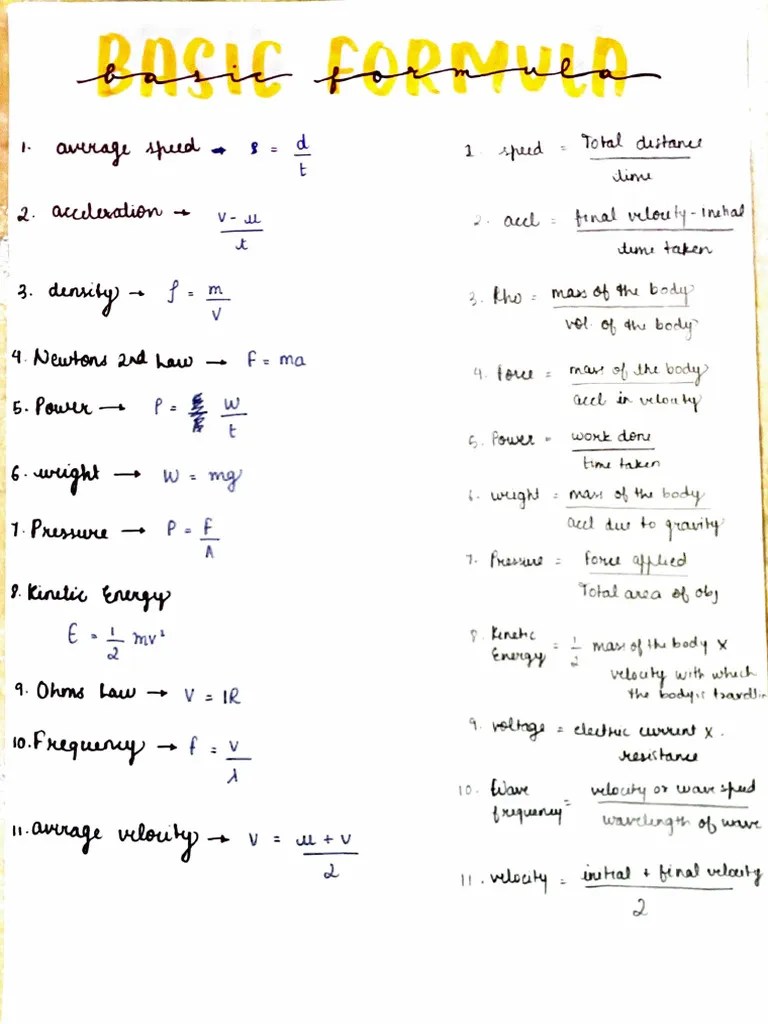 BASIC FORMULA
basic formula
1. average speed → s = d/t
2. acceleration → v - u/t
3. density → ρ = m/V
4. Newtons 2nd Law → F = ma
5. Power → P = W/t
6. weight → W = mg
7. Pressure → P = F/A
8. Kinetic Energy
E = 1/2 mv²
9. Ohms Law → V = IR
10. Frequency → f = v/λ
11. average velocity → v = u + v/2
1. speed = Total distance/time
2. accl = final velocity - initial/time taken
3. Rho = mass of the body/vol. of the body
4. Force = mass of the body/accl in velocity
5. Power = work done/time taken
6. weight = mass of the body/accl due to gravity
7. Pressure = Force applied/Total area of obj
8. Kinetic Energy = 1/2 mass of the body x
velocity with which
the body is travellin
9. voltage = electric current x.
resistance
10. Wave frequency = velocity or wave speed/wavelength of wave
11. velocity = initial + final velocity/2